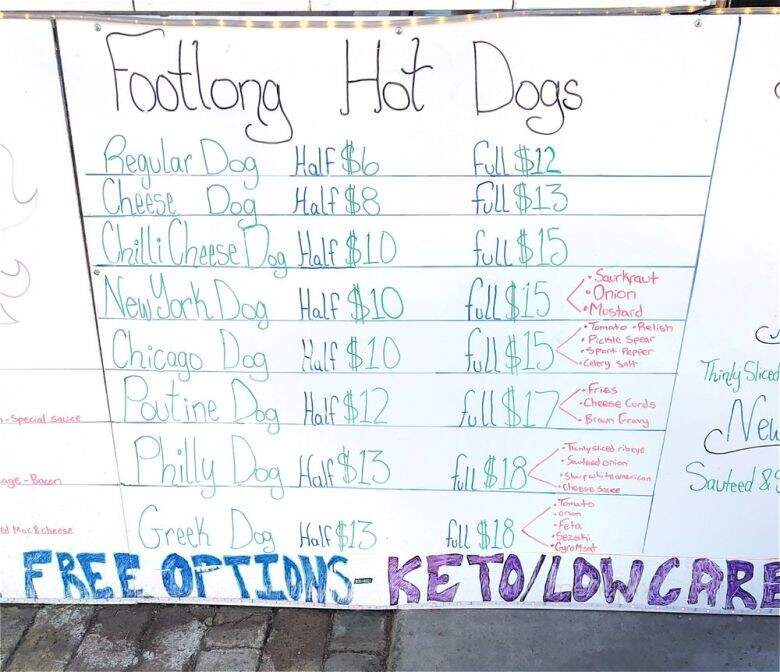 Footlong Hot Dogs
Regular Dog Half $6 full $12
Cheese Dog Half $8 full $13
Chilli Cheese Dog Half $10 full $15
New York Dog Half $10 full $15
• Saurkraut
• Onion
• Mustard
Chicago Dog Half $10 full $15
• Tomato • Relish
• Pickle Spear
• Sport Pepper
• Celery Salt
Poutine Dog Half $12 full $17
• Fries
• Cheese Curds
• Brown Gravy
Philly Dog Half $13 full $18
• Thinly sliced ribeye
• Sauteed onion
• Sharp white american
• Cheese Sauce
Greek Dog Half $13 full $18
• Tomato
• onion
• Feta
• Sezaki
• Gyro Meat
FREE OPTIONS - KETO/LOW CARB
- Special sauce
- Bacon
Mac & cheese
Thinly Sliced
New
Sauteed &